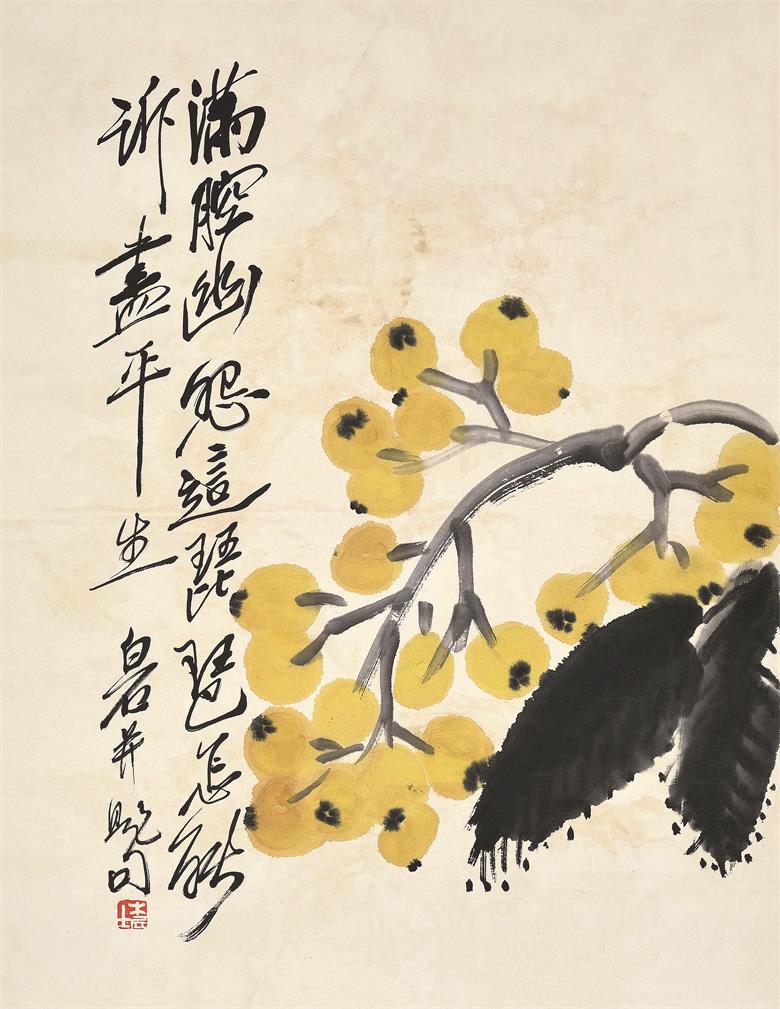 滿腔幽怨這琵琶怎能
訴盡平生 白石并題句